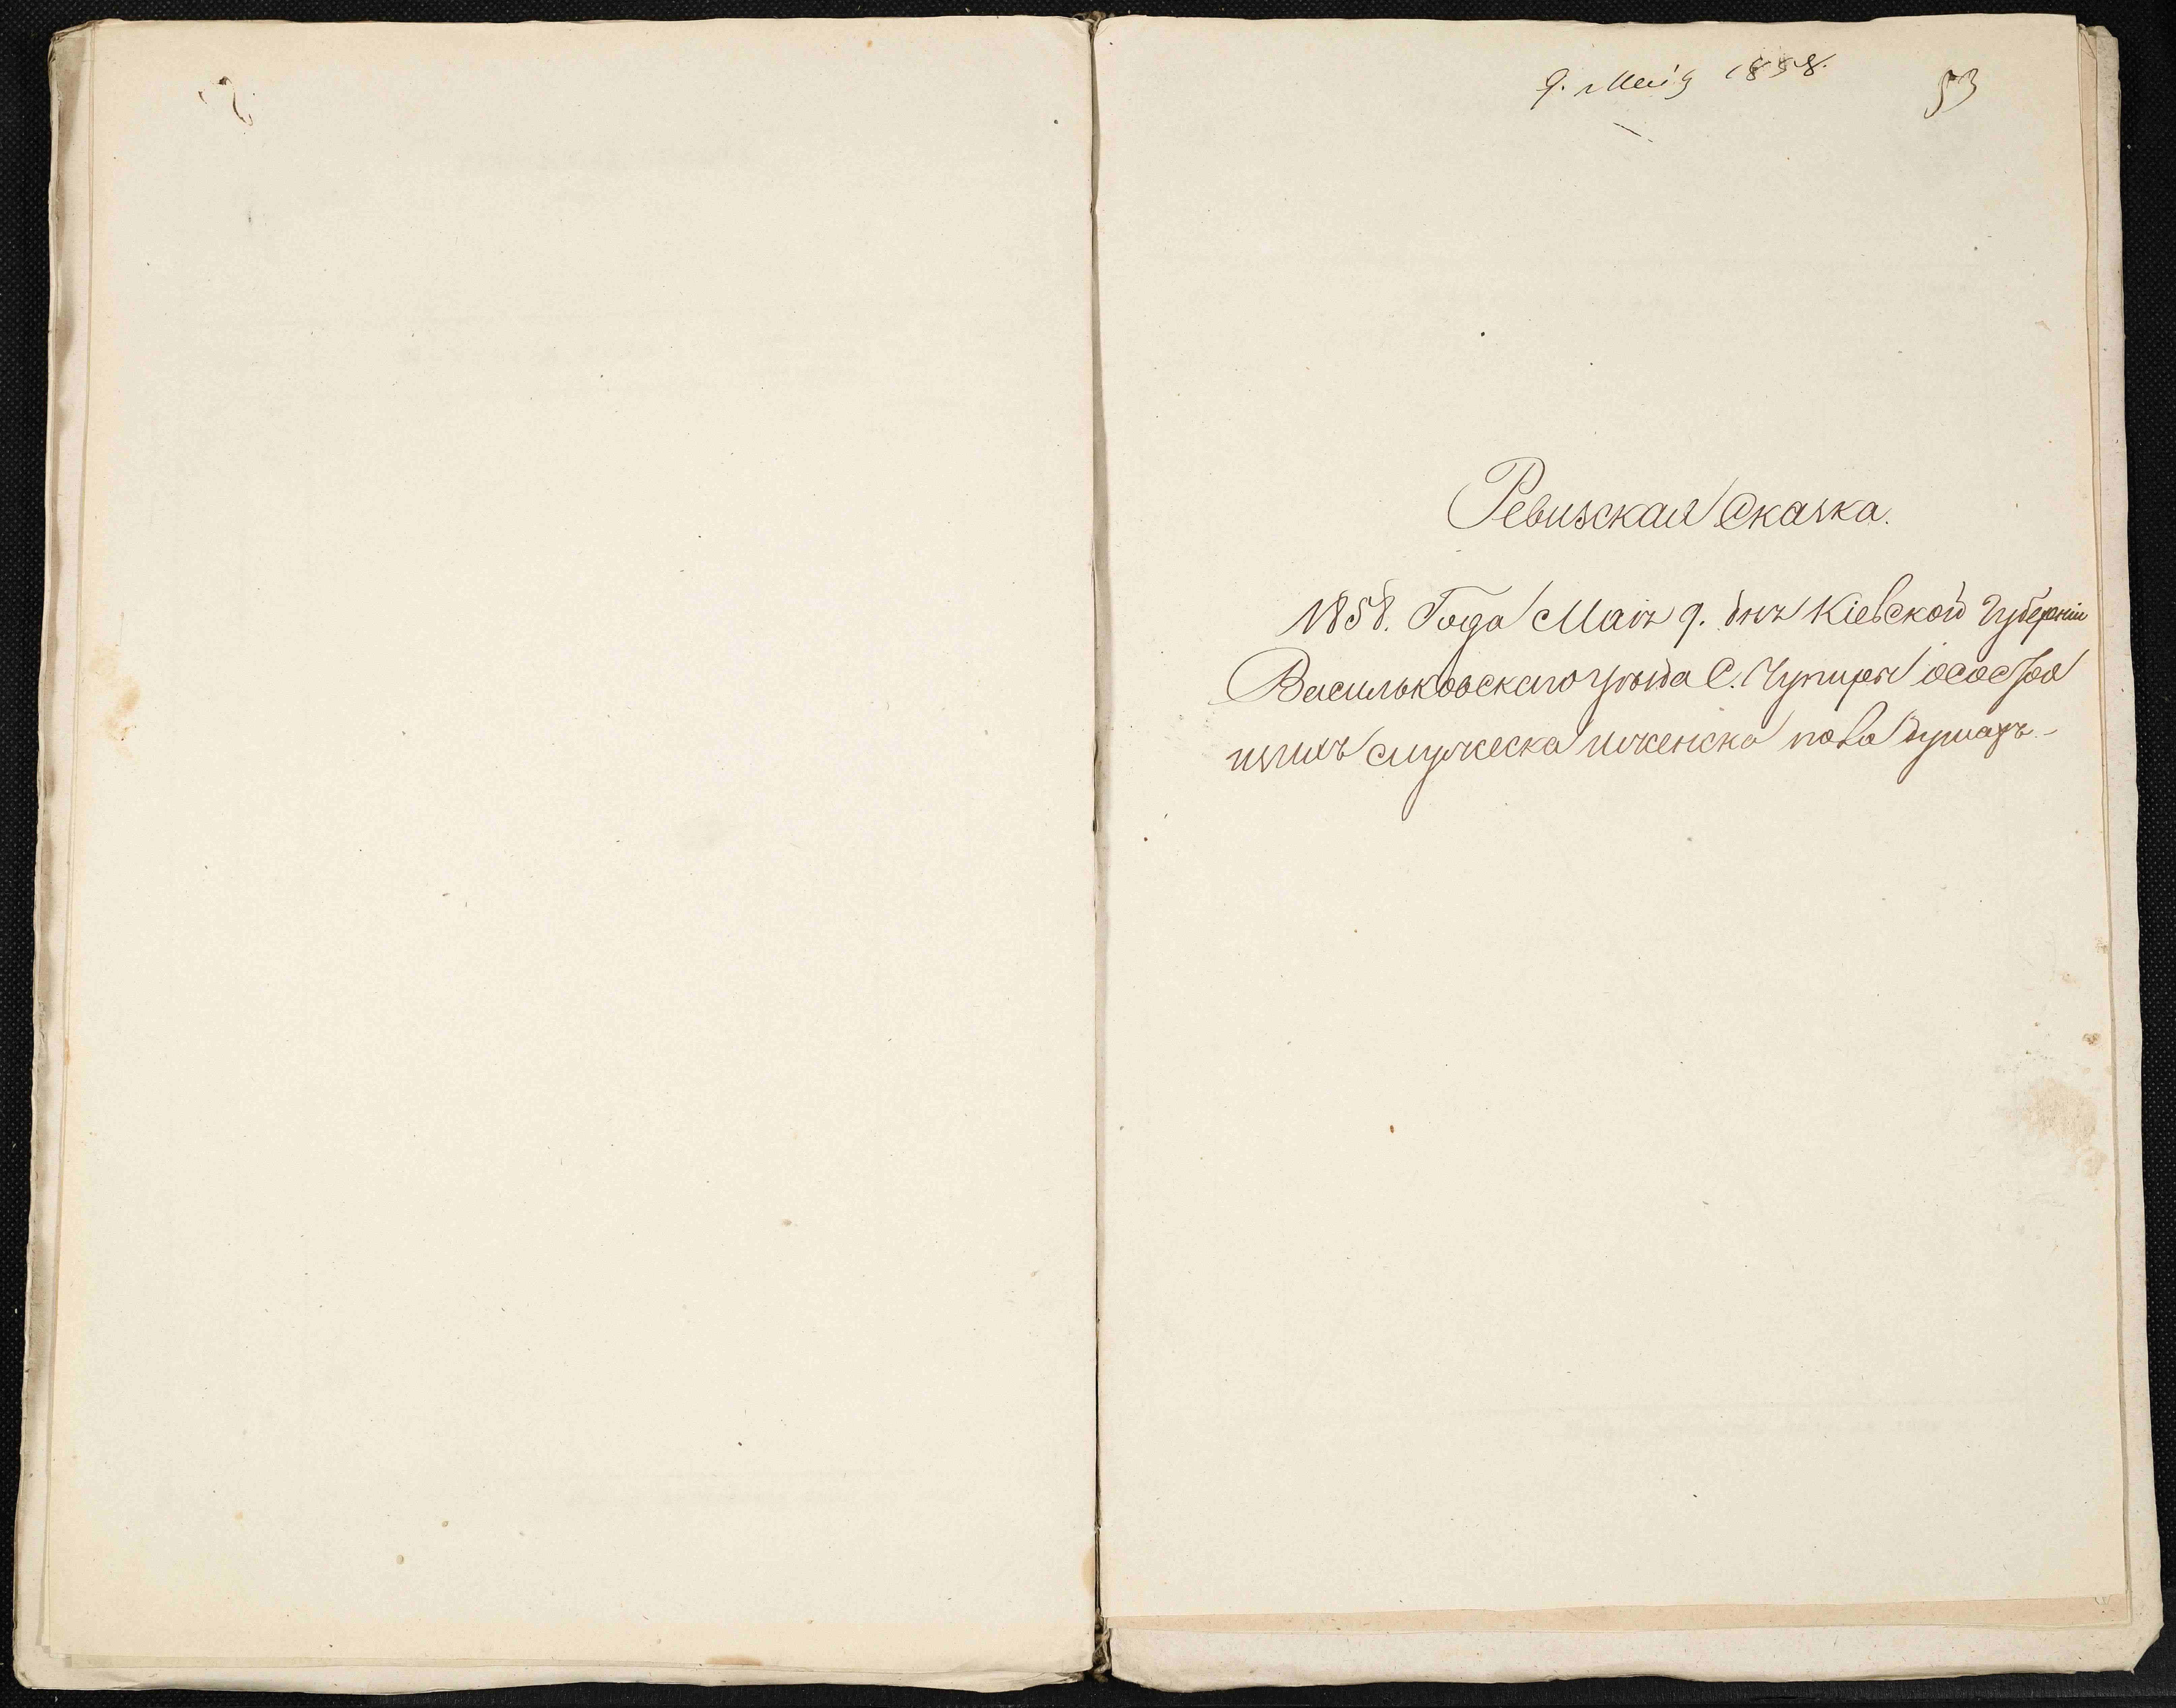 9. Маія 1858.
53
Ревизская Сказка.
1858. Года Маія 9. дня Кіевской Губерніи
Васильковскаго уѣзда С. Чупиры осостоя
щихъ мужеска иженска пола душахъ.-